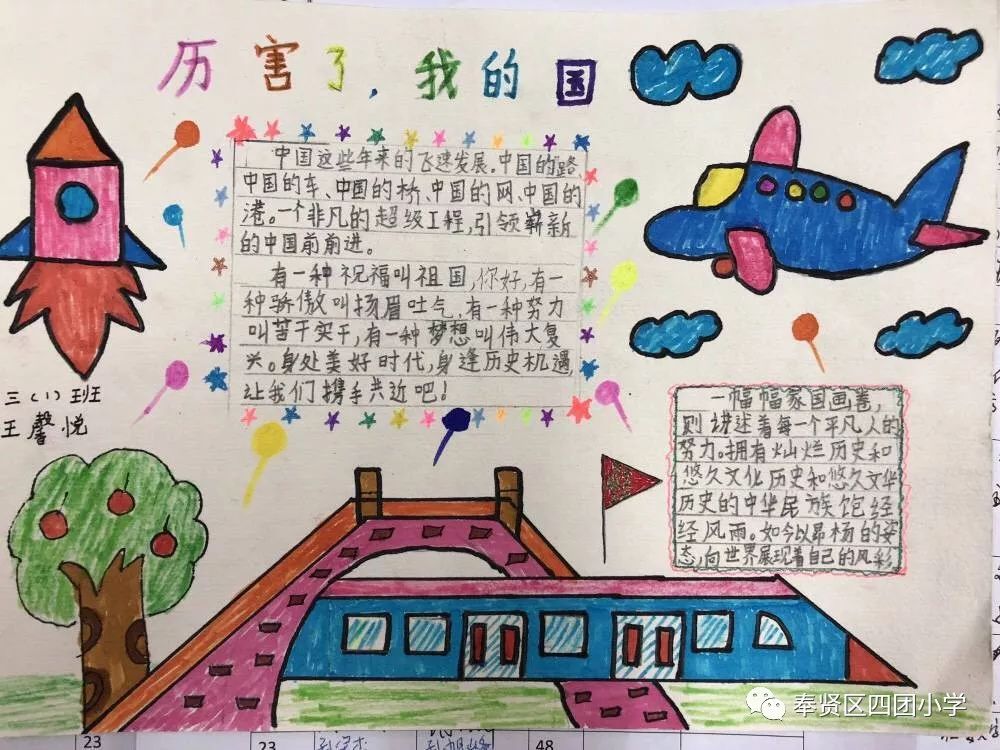 厉害了,我的国
中国这些年来的飞速发展。中国的路
中国的车、中国的桥、中国的网、中国的
港。一个非凡的超级工程,引领崭新
的中国前前进。
有一种祝福叫祖国,你好,有一
种骄傲叫扬眉吐气,有一种努力
叫苦干实干,有一种梦想叫伟大复
兴。身处美好时代,身逢历史机遇,
让我们携手共近吧!
三(1)班
王馨悦
一幅幅家国画卷,
则讲述着每一个平凡人的
努力。拥有灿烂历史和
悠久文化历史和悠久文华
历史的中华民族饱经
经风雨。如今以昂杨的姿
态,向世界展现着自己的风彩
奉贤区四团小学
23
23
48